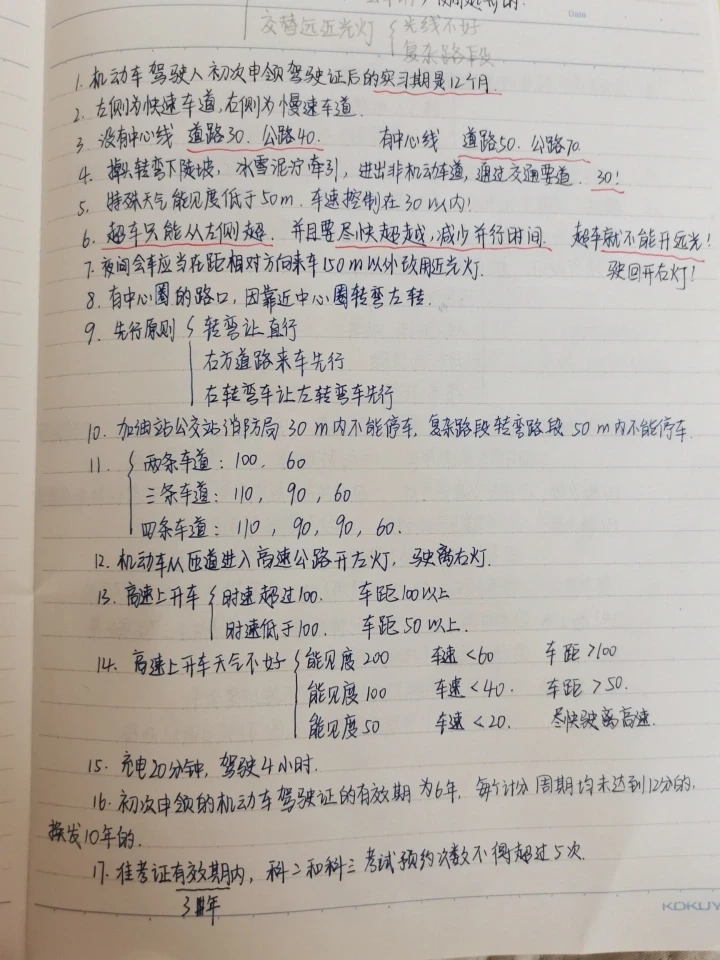 Date
交替远近光灯 { 光线不好
复杂路段
1. 机动车驾驶人初次申领驾驶证后的实习期是12个月.
2. 左侧为快速车道,右侧为慢速车道.
3. 没有中心线 道路30. 公路40. 有中心线 道路50. 公路70.
4. 掉头转弯下陡坡, 冰雪泥泞牵引, 进出非机动车道, 通过交通要道. 30!
5. 特殊天气能见度低于50m. 车速控制在30以内!
6. 超车只能从左侧超. 并且要尽快超越,减少并行时间. 超车就不能开远光!
7. 夜间会车应当在距相对方向来车150m以外改用近光灯. 驶回开右灯!
8. 有中心圈的路口, 因靠近中心圈转弯左转.
9. 先行原则 { 转弯让直行
右方道路来车先行
右转弯车让左转弯车先行
10. 加油站公交站消防局 30m内不能停车, 复杂路段转弯路段 50m内不能停车.
11. { 两条车道: 100, 60
三条车道: 110, 90, 60
四条车道: 110, 90, 90, 60.
12. 机动车从匝道进入高速公路开左灯, 驶离右灯.
13. 高速上开车 { 时速超过100. 车距100以上
时速低于100. 车距50以上.
14. 高速上开车天气不好 { 能见度200 车速<60 车距>100
能见度100 车速<40. 车距>50.
能见度50 车速<20. 尽快驶离高速.
15. 充电20分钟, 驾驶4小时.
16. 初次申领的机动车驾驶证的有效期为6年, 每个计分周期均未达到12分的,
换发10年的.
17. 准考证有效期内, 科二和科三考试预约次数不得超过5次.
3年
KOKUY